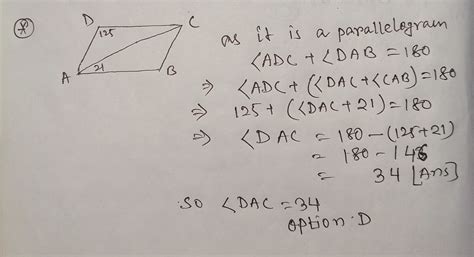 D C
125
21
A B
as it is a parallelogram
∠ADC + ∠DAB = 180
⇒ ∠ADC + (∠DAC + ∠CAB) = 180
⇒ 125 + (∠DAC + 21) = 180
⇒ ∠DAC = 180 - (125 + 21)
= 180 - 146
= 34 [Ans]
so ∠DAC = 34
option D